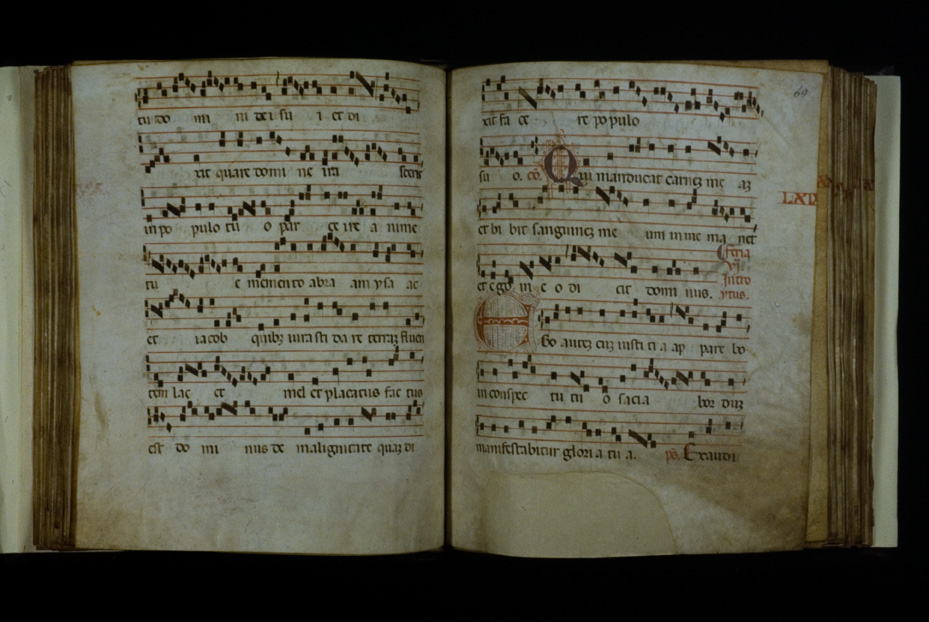 tu do mi ni de i su i et di
xit quare domi ne ira sceris
in po pulo tu o par ce ire a nime
tu e memento abra am ysa ac
et iacob quibȝ iura sti da re terrā fluen
tem lac et mel et placatus fac tus
est do mi nus de malignitate quā di
69
xit fa ce re po pulo
su o. cō. Qui manducat carnē me aȝ
LXIX
et bi bit sanguinē me um in me ma net
et ego in e o di cit domi nus.
Feria
vi
Intro
ytus.
Ego autē cū iusti ti a ap pare bo
in conspec tu tu o sacia bor dū
manifestabitur glori a tu a. ps. Exaudi